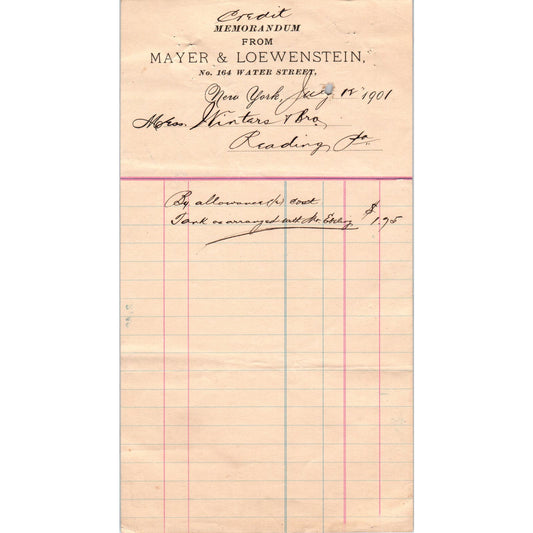 Credit
MEMORANDUM
FROM
MAYER & LOEWENSTEIN,
No. 164 WATER STREET,
New York, July 18 1901
Mess. Winters & Bro.
Reading, Pa.
By allowance a/c cost $
Tank as arranged with Mr. 1.95